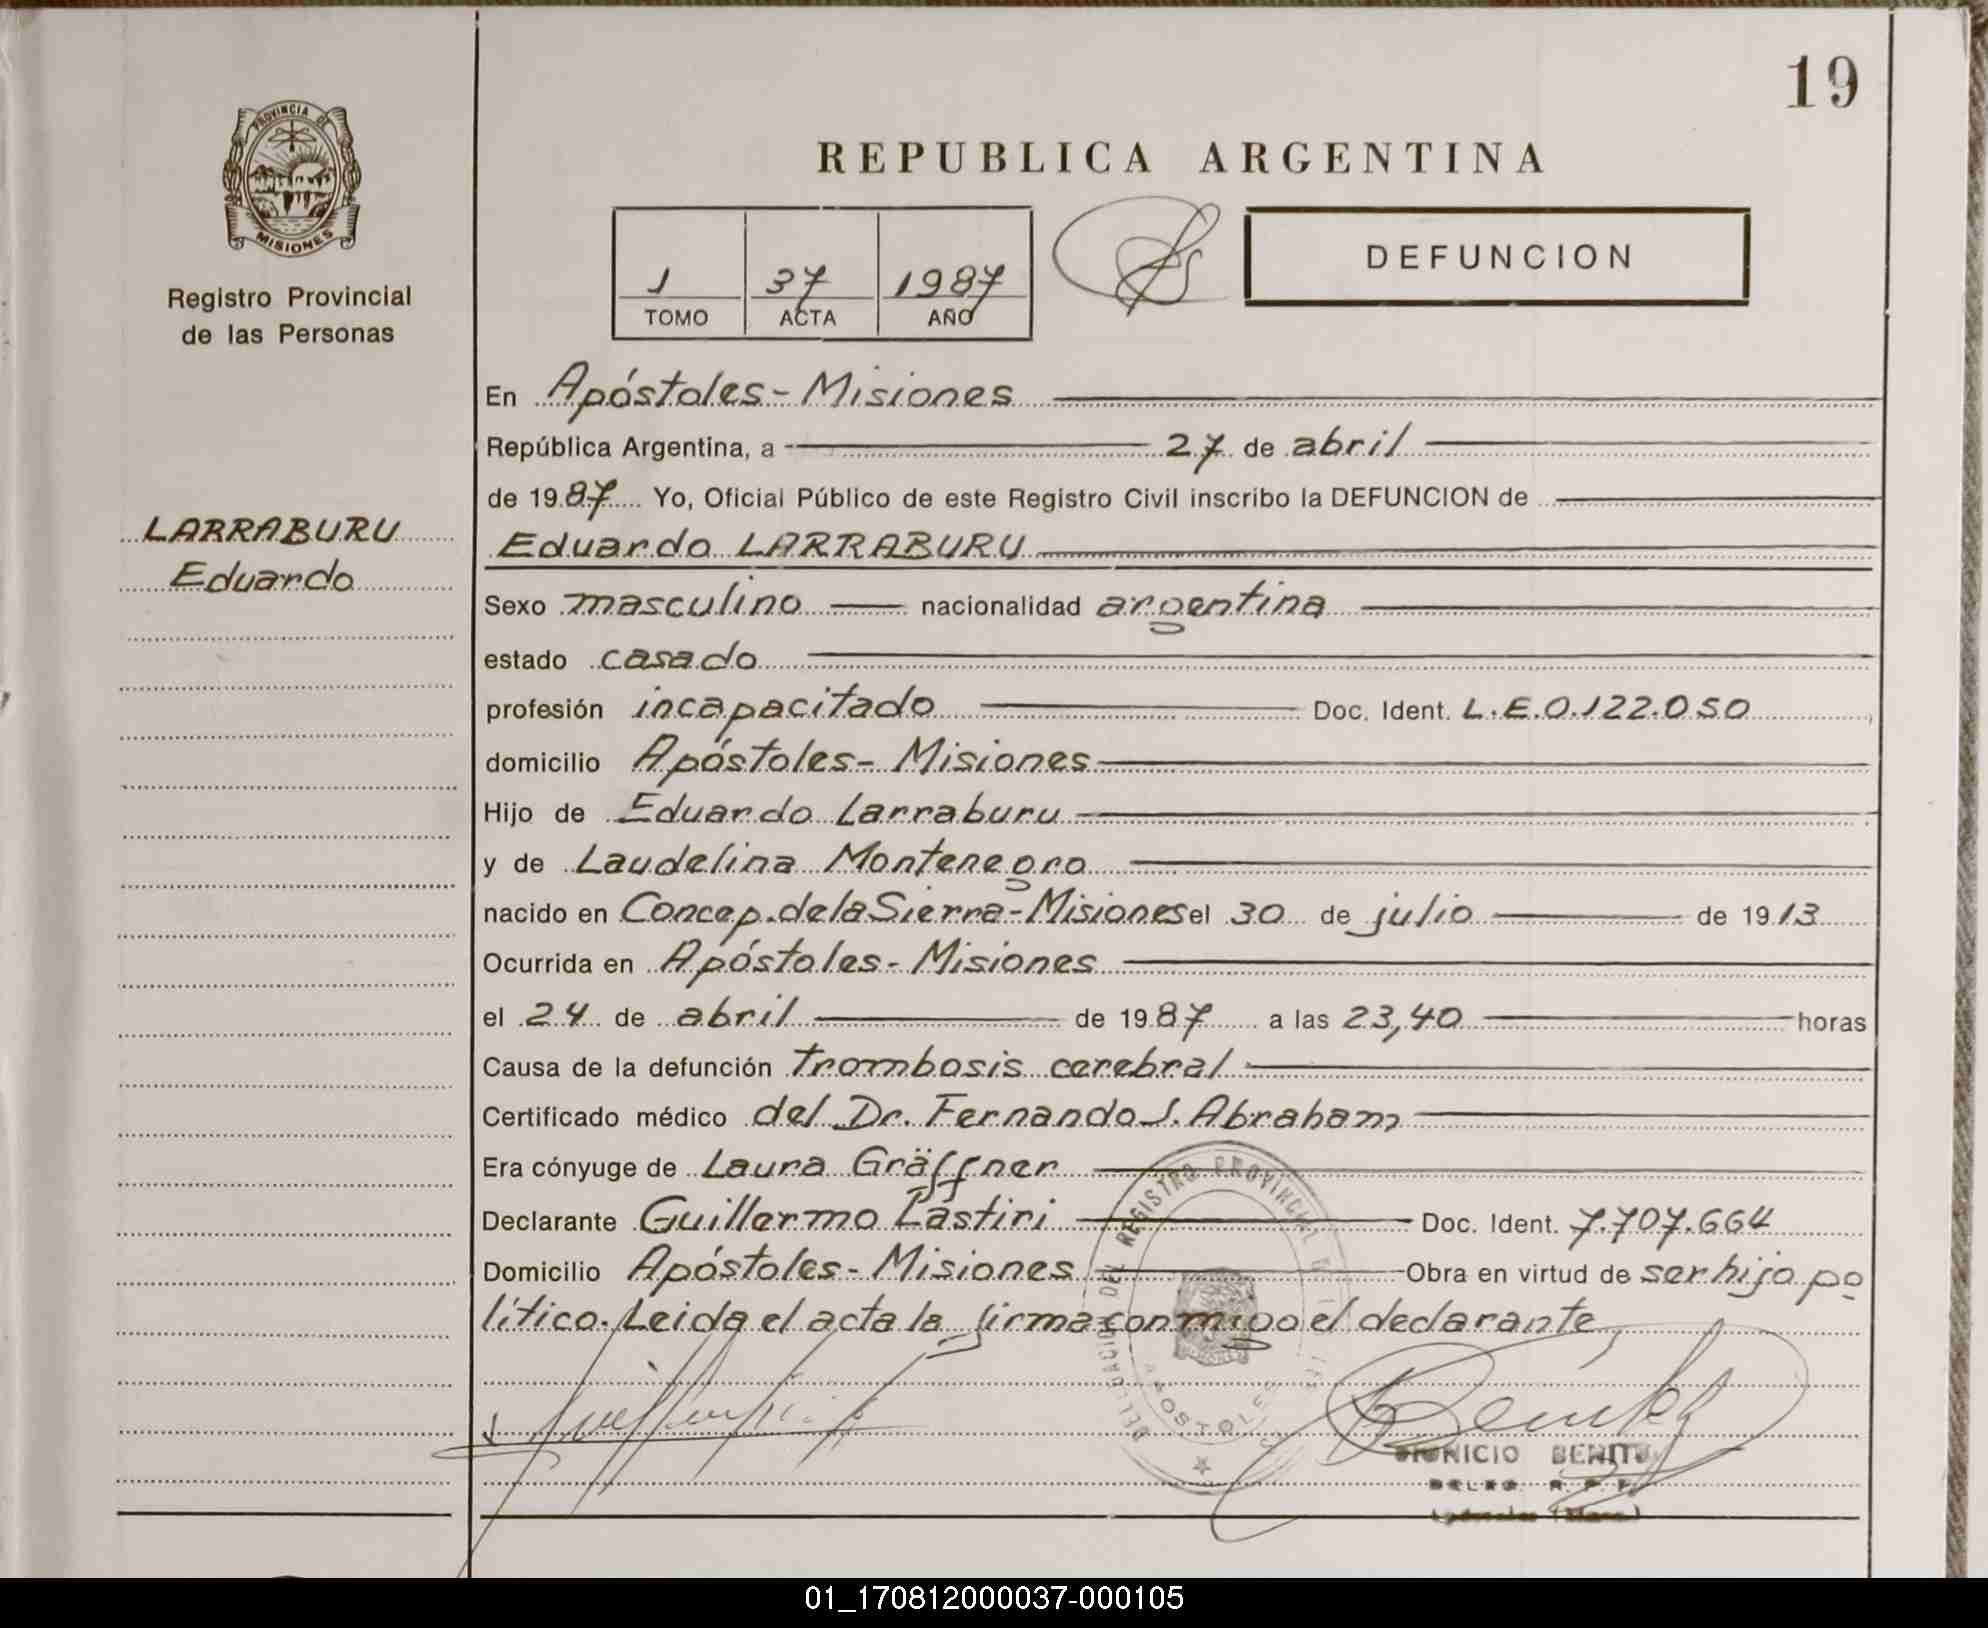 19
PROVINCIA DE
MISIONES
Registro Provincial
de las Personas
LARRABURU
Eduardo
REPUBLICA ARGENTINA
1 37 1987
TOMO ACTA AÑO
DEFUNCION
En Apóstoles - Misiones
República Argentina, a 27 de abril
de 1987 Yo, Oficial Público de este Registro Civil inscribo la DEFUNCION de
Eduardo LARRABURU
Sexo masculino nacionalidad argentina
estado casado
profesión incapacitado Doc. Ident. L.E.0.122.050
domicilio Apóstoles - Misiones
Hijo de Eduardo Larraburu
y de Laudelina Montenegro
nacido en Concep. de la Sierra - Misiones el 30 de julio de 1913
Ocurrida en Apóstoles - Misiones
el 24 de abril de 1987 a las 23,40 horas
Causa de la defunción trombosis cerebral
Certificado médico del Dr. Fernando J. Abraham
Era cónyuge de Laura Gräffner
Declarante Guillermo Lastiri Doc. Ident. 7.707.664
Domicilio Apóstoles - Misiones Obra en virtud de ser hijo po
lítico. Leida el acta la firma conmigo el declarante
DEL REGISTRO PROVINCIAL
APOSTOLES
DIONICIO BENITO
01_170812000037-000105